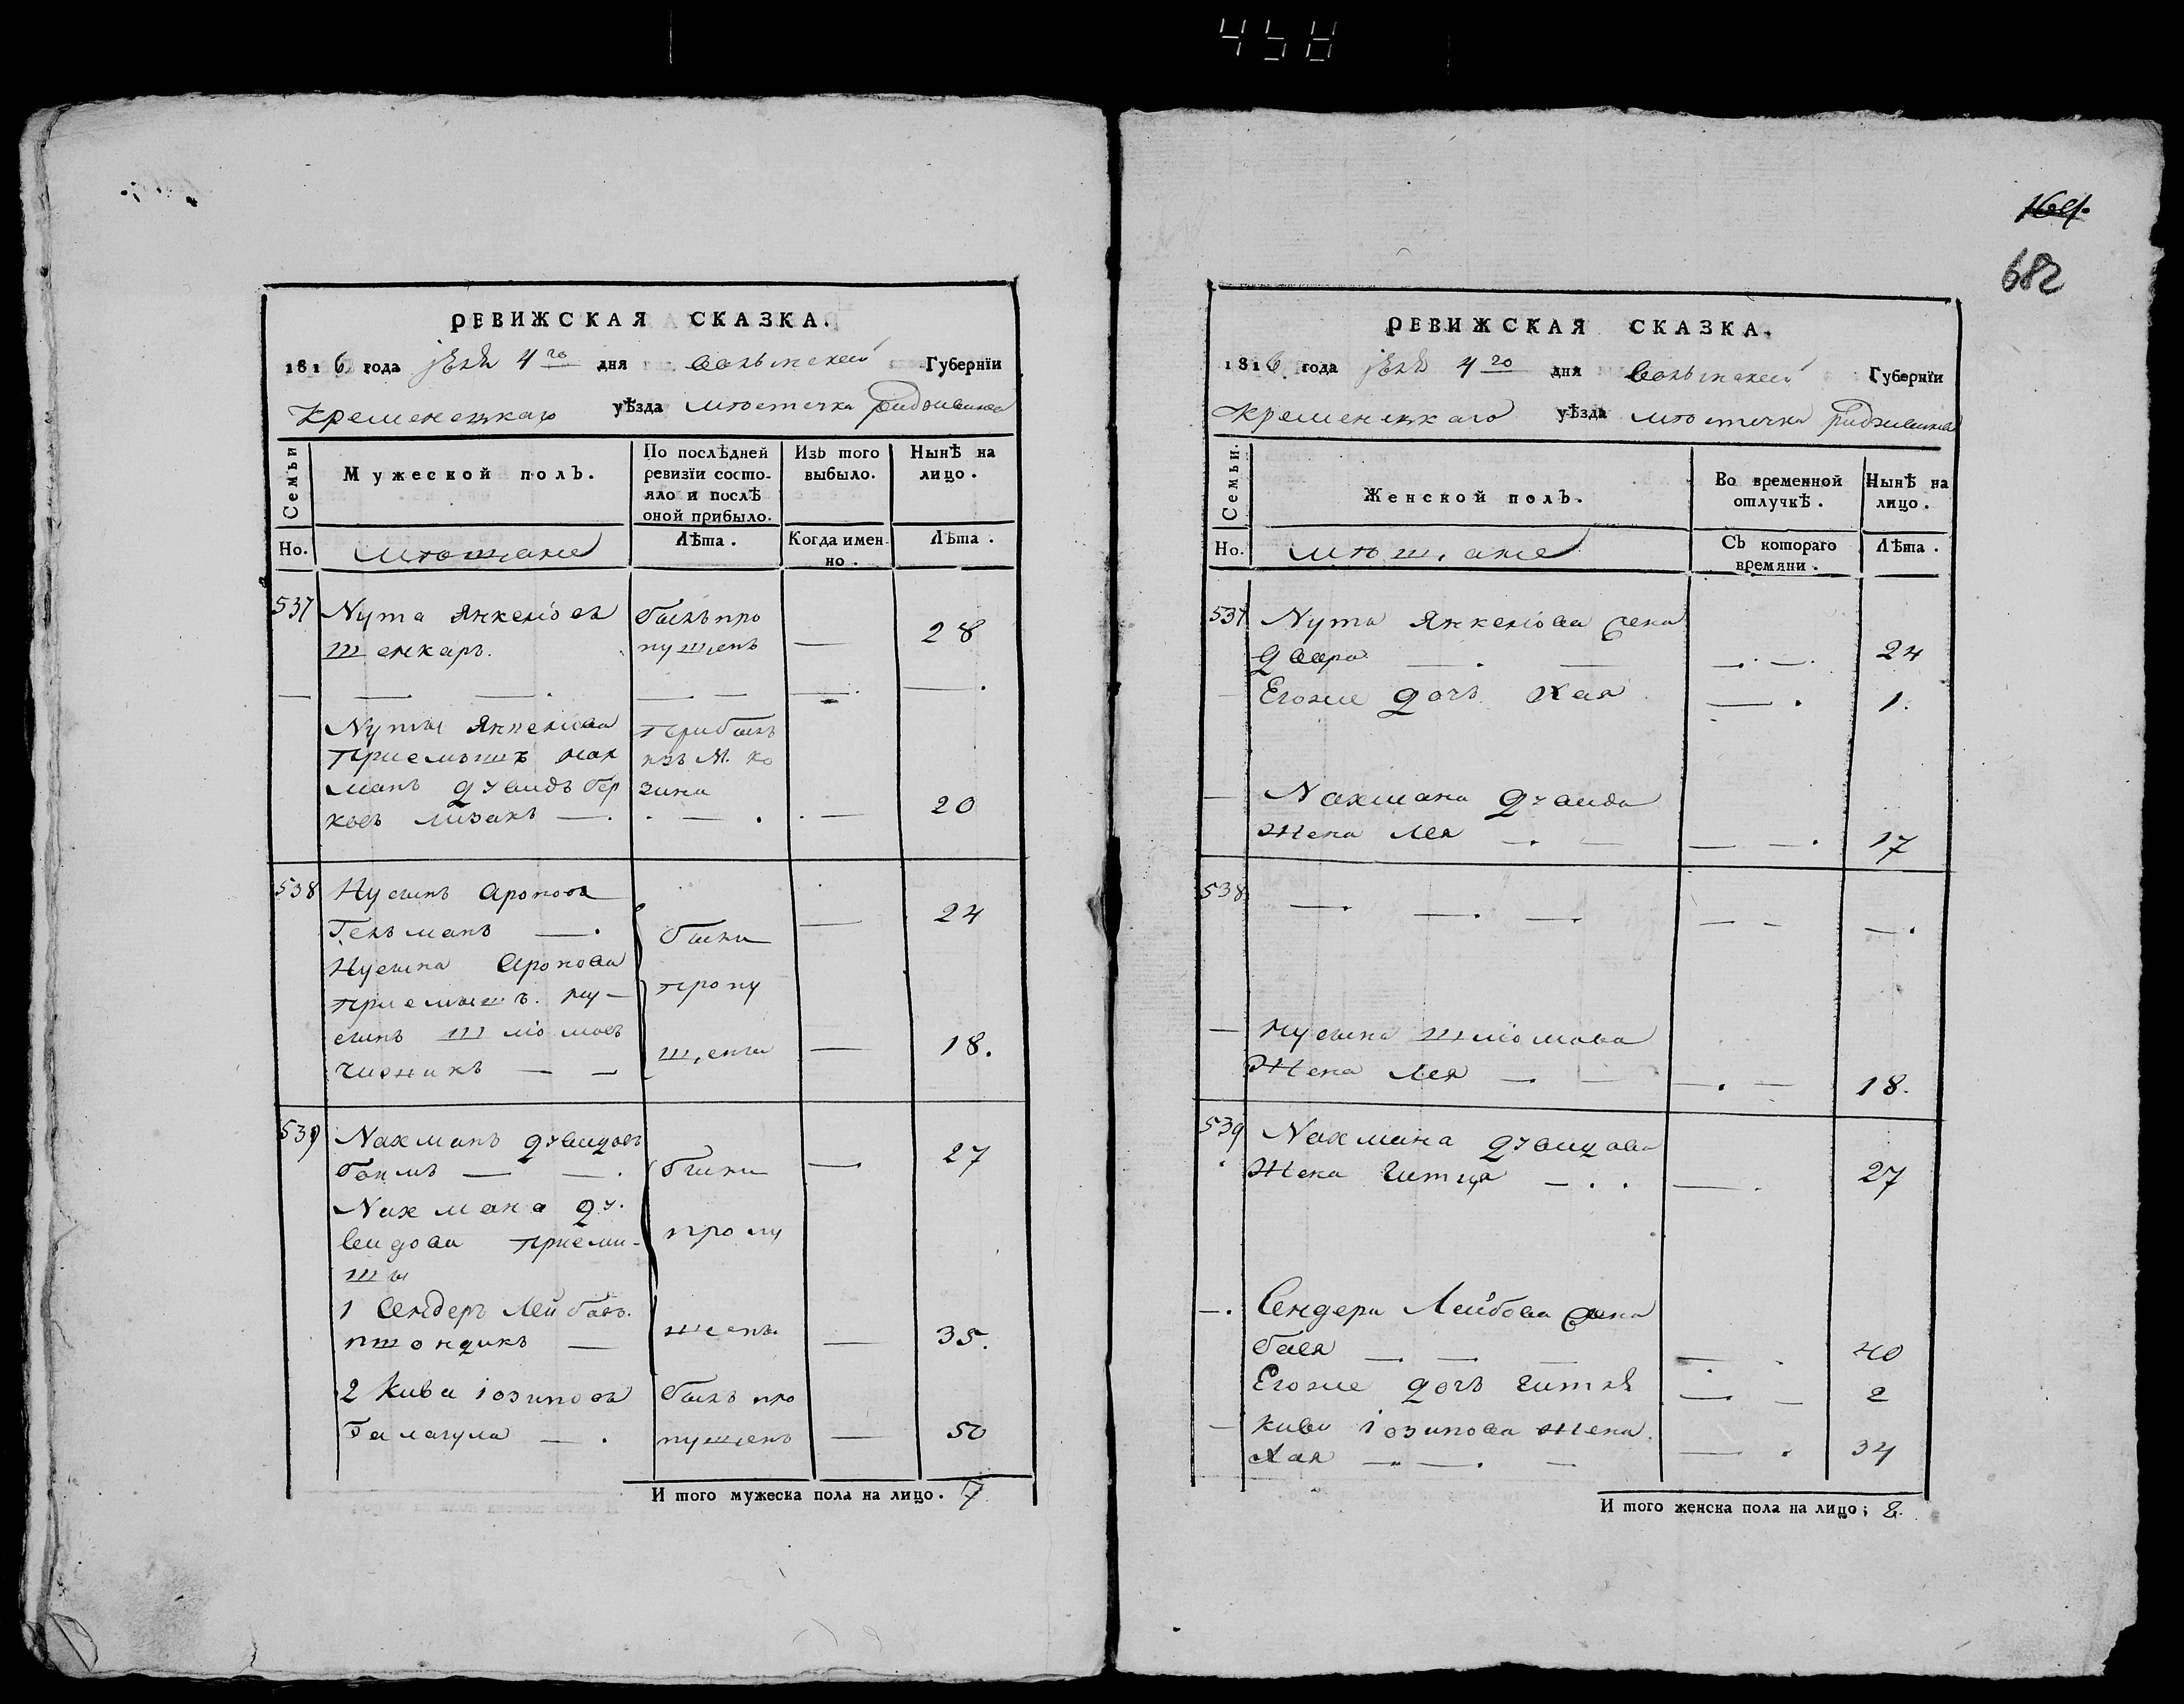 458
РЕВИЖСКАЯ СКАЗКА.
1816 года 4го дня Волынской Губернїи
Кременецкаго уѣзда мѣстечка Радзивилова
Семьи
Мужеской полъ.
По послѣдней ревизїи состояло и послѣ оной прибыло.
Изъ того выбыло.
Нынѣ на лицо.
Но.
мѣщане
Лѣта.
Когда именно.
Лѣта.
537 Нута Янкелiовъ былъ про
шенкаръ. пущенъ — 28
Нуты Янкелиова прибылъ
приемышъ нах изъ М. ко
манъ дувидъ бер зина
ковъ лизакъ —. 20
538 Нусинъ Аронова 24
Гельманъ —. были
Нусина Аронова
приемышъ. ну- пропу
синъ шлiомовъ щены — 18.
чижикъ — —
539 Нахманъ дувидовъ 27
бакмъ — —. были —
Нахмана ду.
видова приеми- пропу
ши
1 Сендеръ Лейбовъ.
пшондикъ — щены — 35.
2 Кива iозиповъ былъ про
Галагула —. пущенъ — 50
И того мужеска пола на лицо. 7
164.
682
РЕВИЖСКАЯ СКАЗКА.
1816 года 4го дня Волынской Губернїи
Кременецкаго уѣзда мѣстечка Радзивилова
Семьи.
Женской полъ.
Во временной отлучкѣ.
Нынѣ на лицо.
Но.
мѣщане
Съ котораго времяни.
Лѣта.
537 Нута Янкелiова жена
двора —. — 24
Егоже дочь Хая —. 1.
— Нахмана дувида
жена Лея —. — — —. 17
538 —. —. — — - —.
— Нусина шлiомова
Жена Лея —. — —. — 18.
539 Нахмана дувидова
Жена Гитця —.. —. 27
—. Сендера Лейбова жена
бася — — — — 40
Егоже дочь гитля — — 2
— Киви iозипова жена
Хая — —. — —. 34
И того женска пола на лицо; 8.